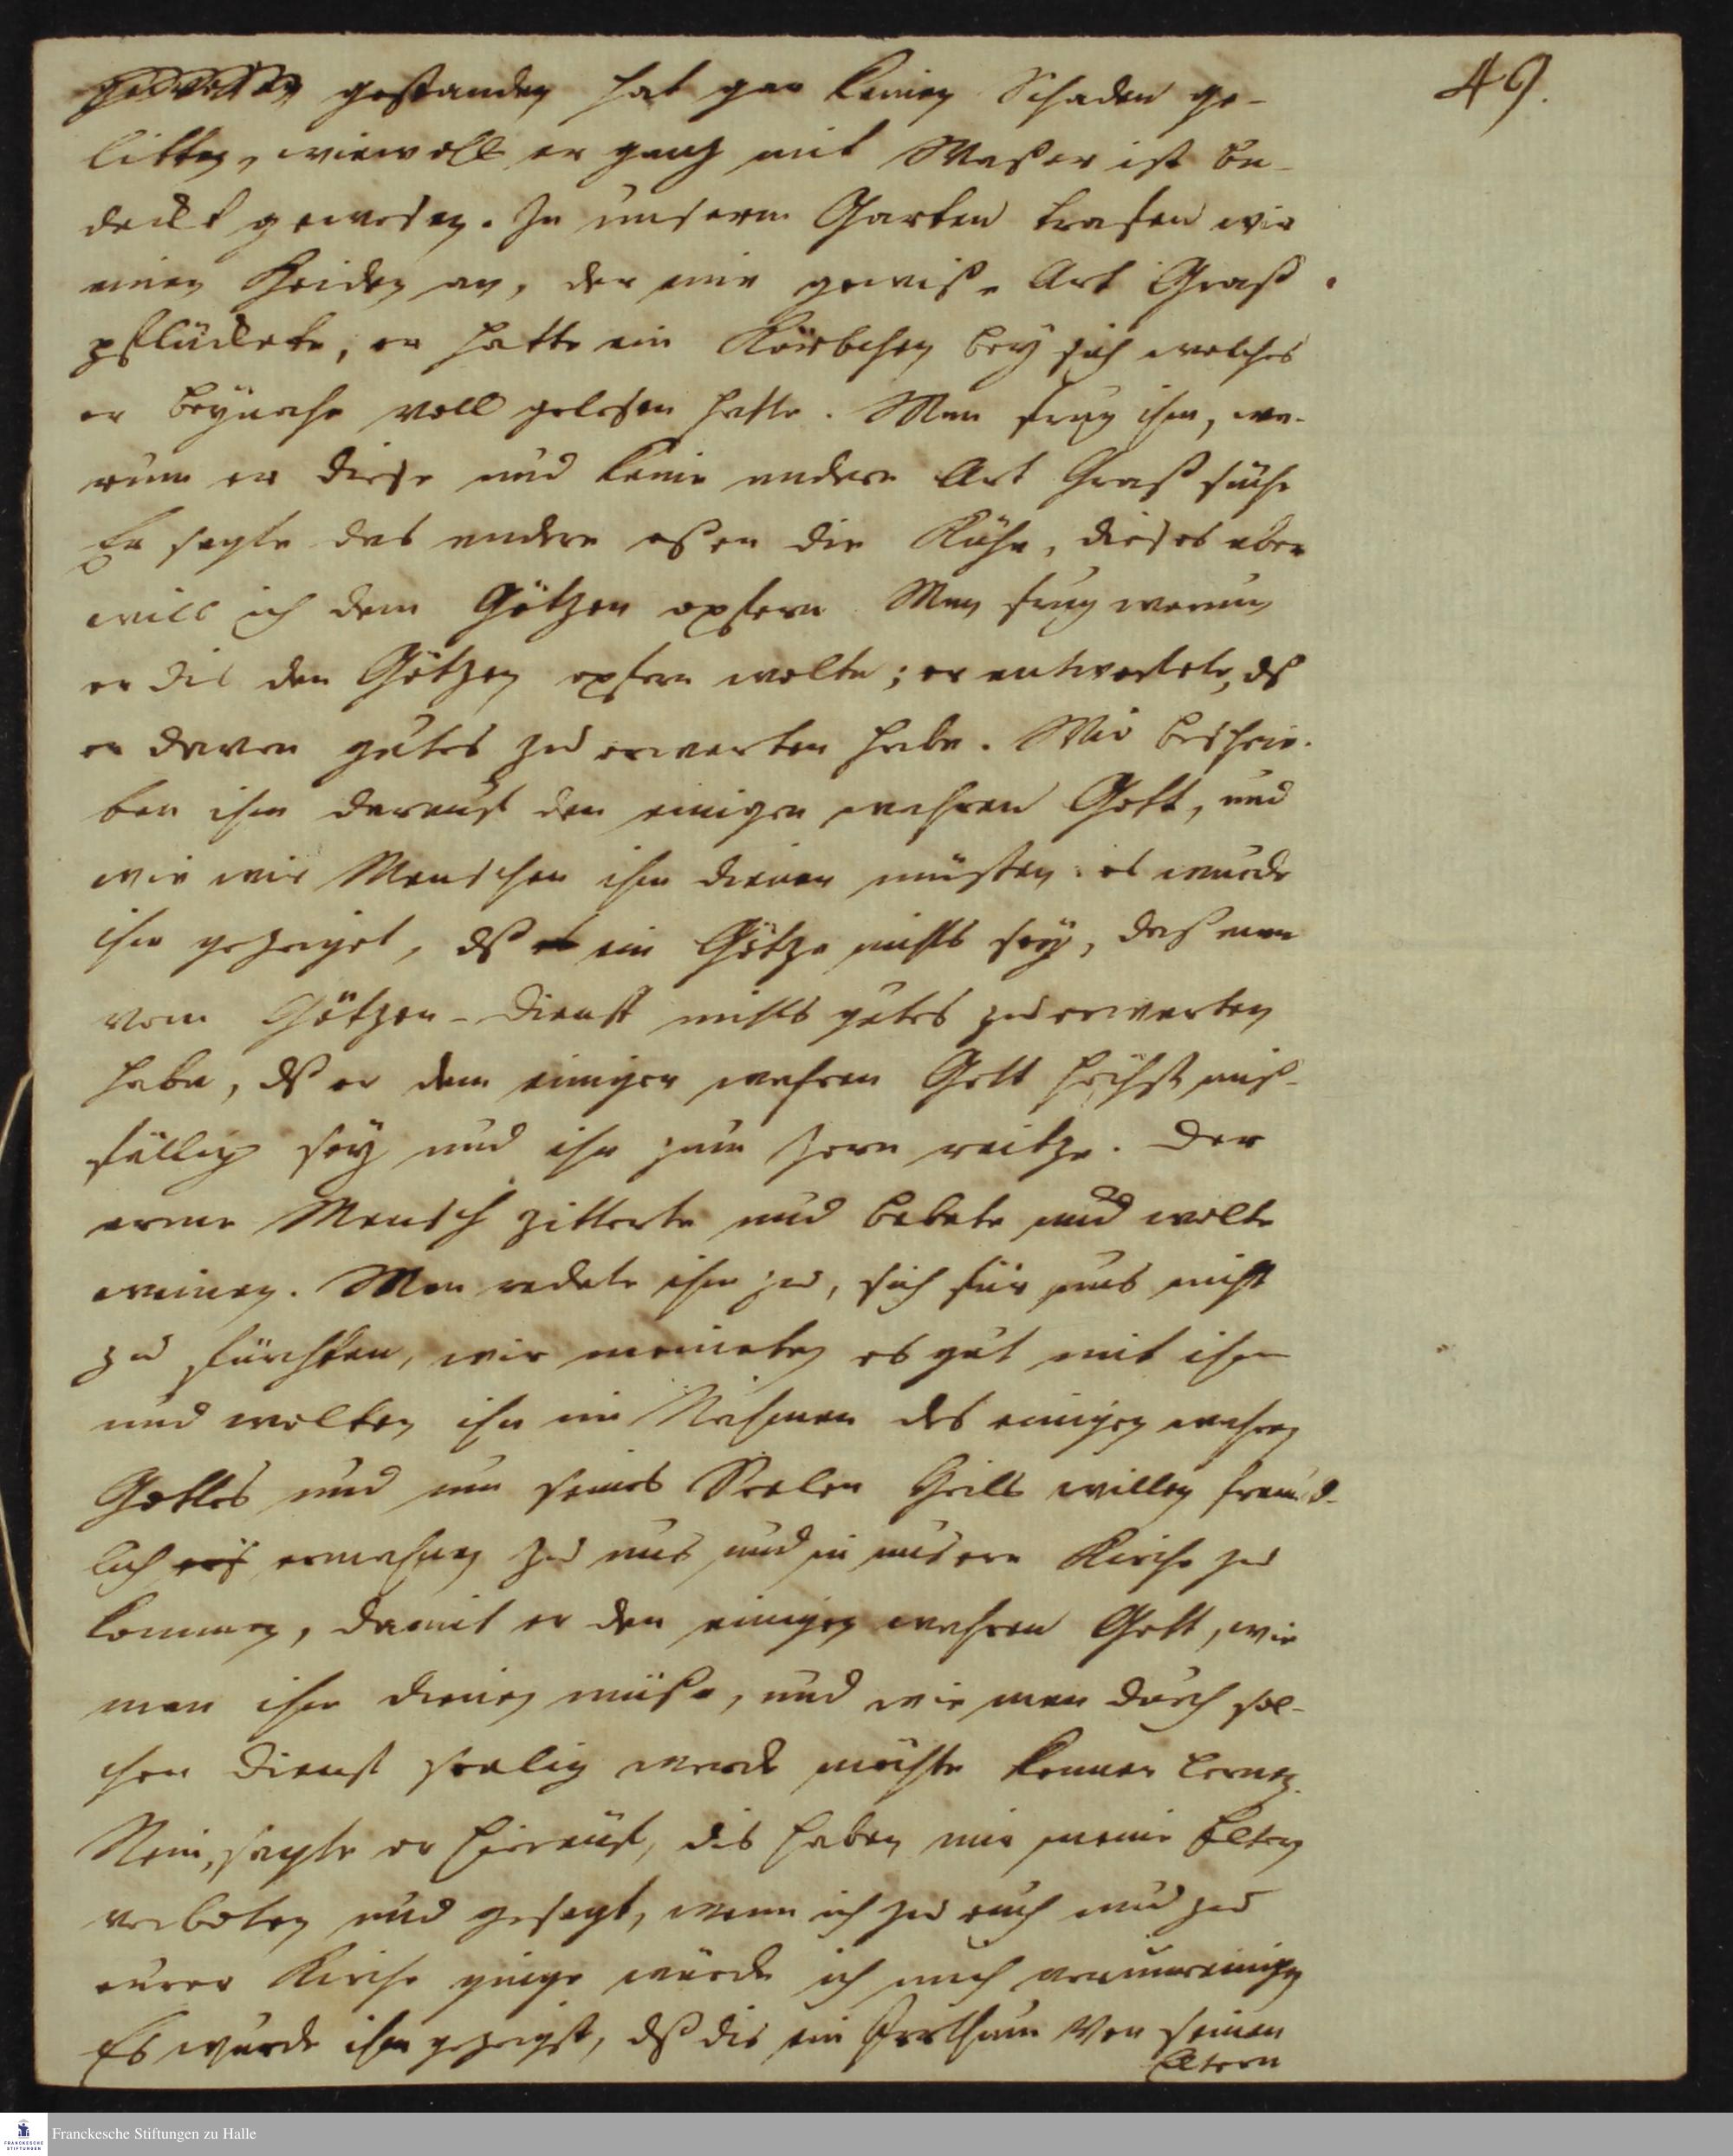 49.
gestanden hat gar keinen Schaden ge-
litten, wiewoll er gantz mit Waßer ist be-
deckt gewesen. In unserm Garten trafen wir
einen Heiden an, der eine gewiße Art Graß
pflückete, er hatte ein Körbchen bey sich welches
er beynahe voll gelesen hatte. Man frug ihn, wa-
rum er diese und keine andere Art Graß suche
Er sagte das andere eßen die Kühe, dieses aber
will ich dem Götzen opfern Man frug warum
er dis den Götzen opfern wolte; er antwortete, dß
er davon gutes zu erwarten habe. Wir beschrie-
ben ihm darauf den einigen wahren Gott, und
wie wir Menschen ihm dienen müsten: es wurde
ihm gezeiget, dß ein Götze nichts sey, daß man
vom Götzen-Dienst nichts gutes zu erwarten
habe, dß er dem einigen wahren Gott höchst miß-
fällig sey und ihn zum Zorn reitze. Der
arme Mensch zitterte und bebete und wolte
weinen. Man redete ihm zu, sich für uns nicht
zu fürchten, wir meineten es gut mit ihm
und wolten ihn im Nahmen des einigen wahren
Gottes und um seines Seelen Heils willen freund-
lich ermahnen zu uns und in unsere Kirche zu
kommen, damit er den einigen wahren Gott, wie
man ihm dienen müße, und wie man durch sol-
chen Dienst seelig werde möchte kennen lernen.
Nein, sagte er hierauf, dis haben mir meine Eltern
verboten und gesagt, wenn ich zu euch und zu
eurer Kirche ginge würde ich mich verunreinigen
Es wurde ihm gezeigt, dß dis ein Irrthum von seinen
Eltern
Franckesche Stiftungen zu Halle
FRANCKESCHE STIFTUNGEN